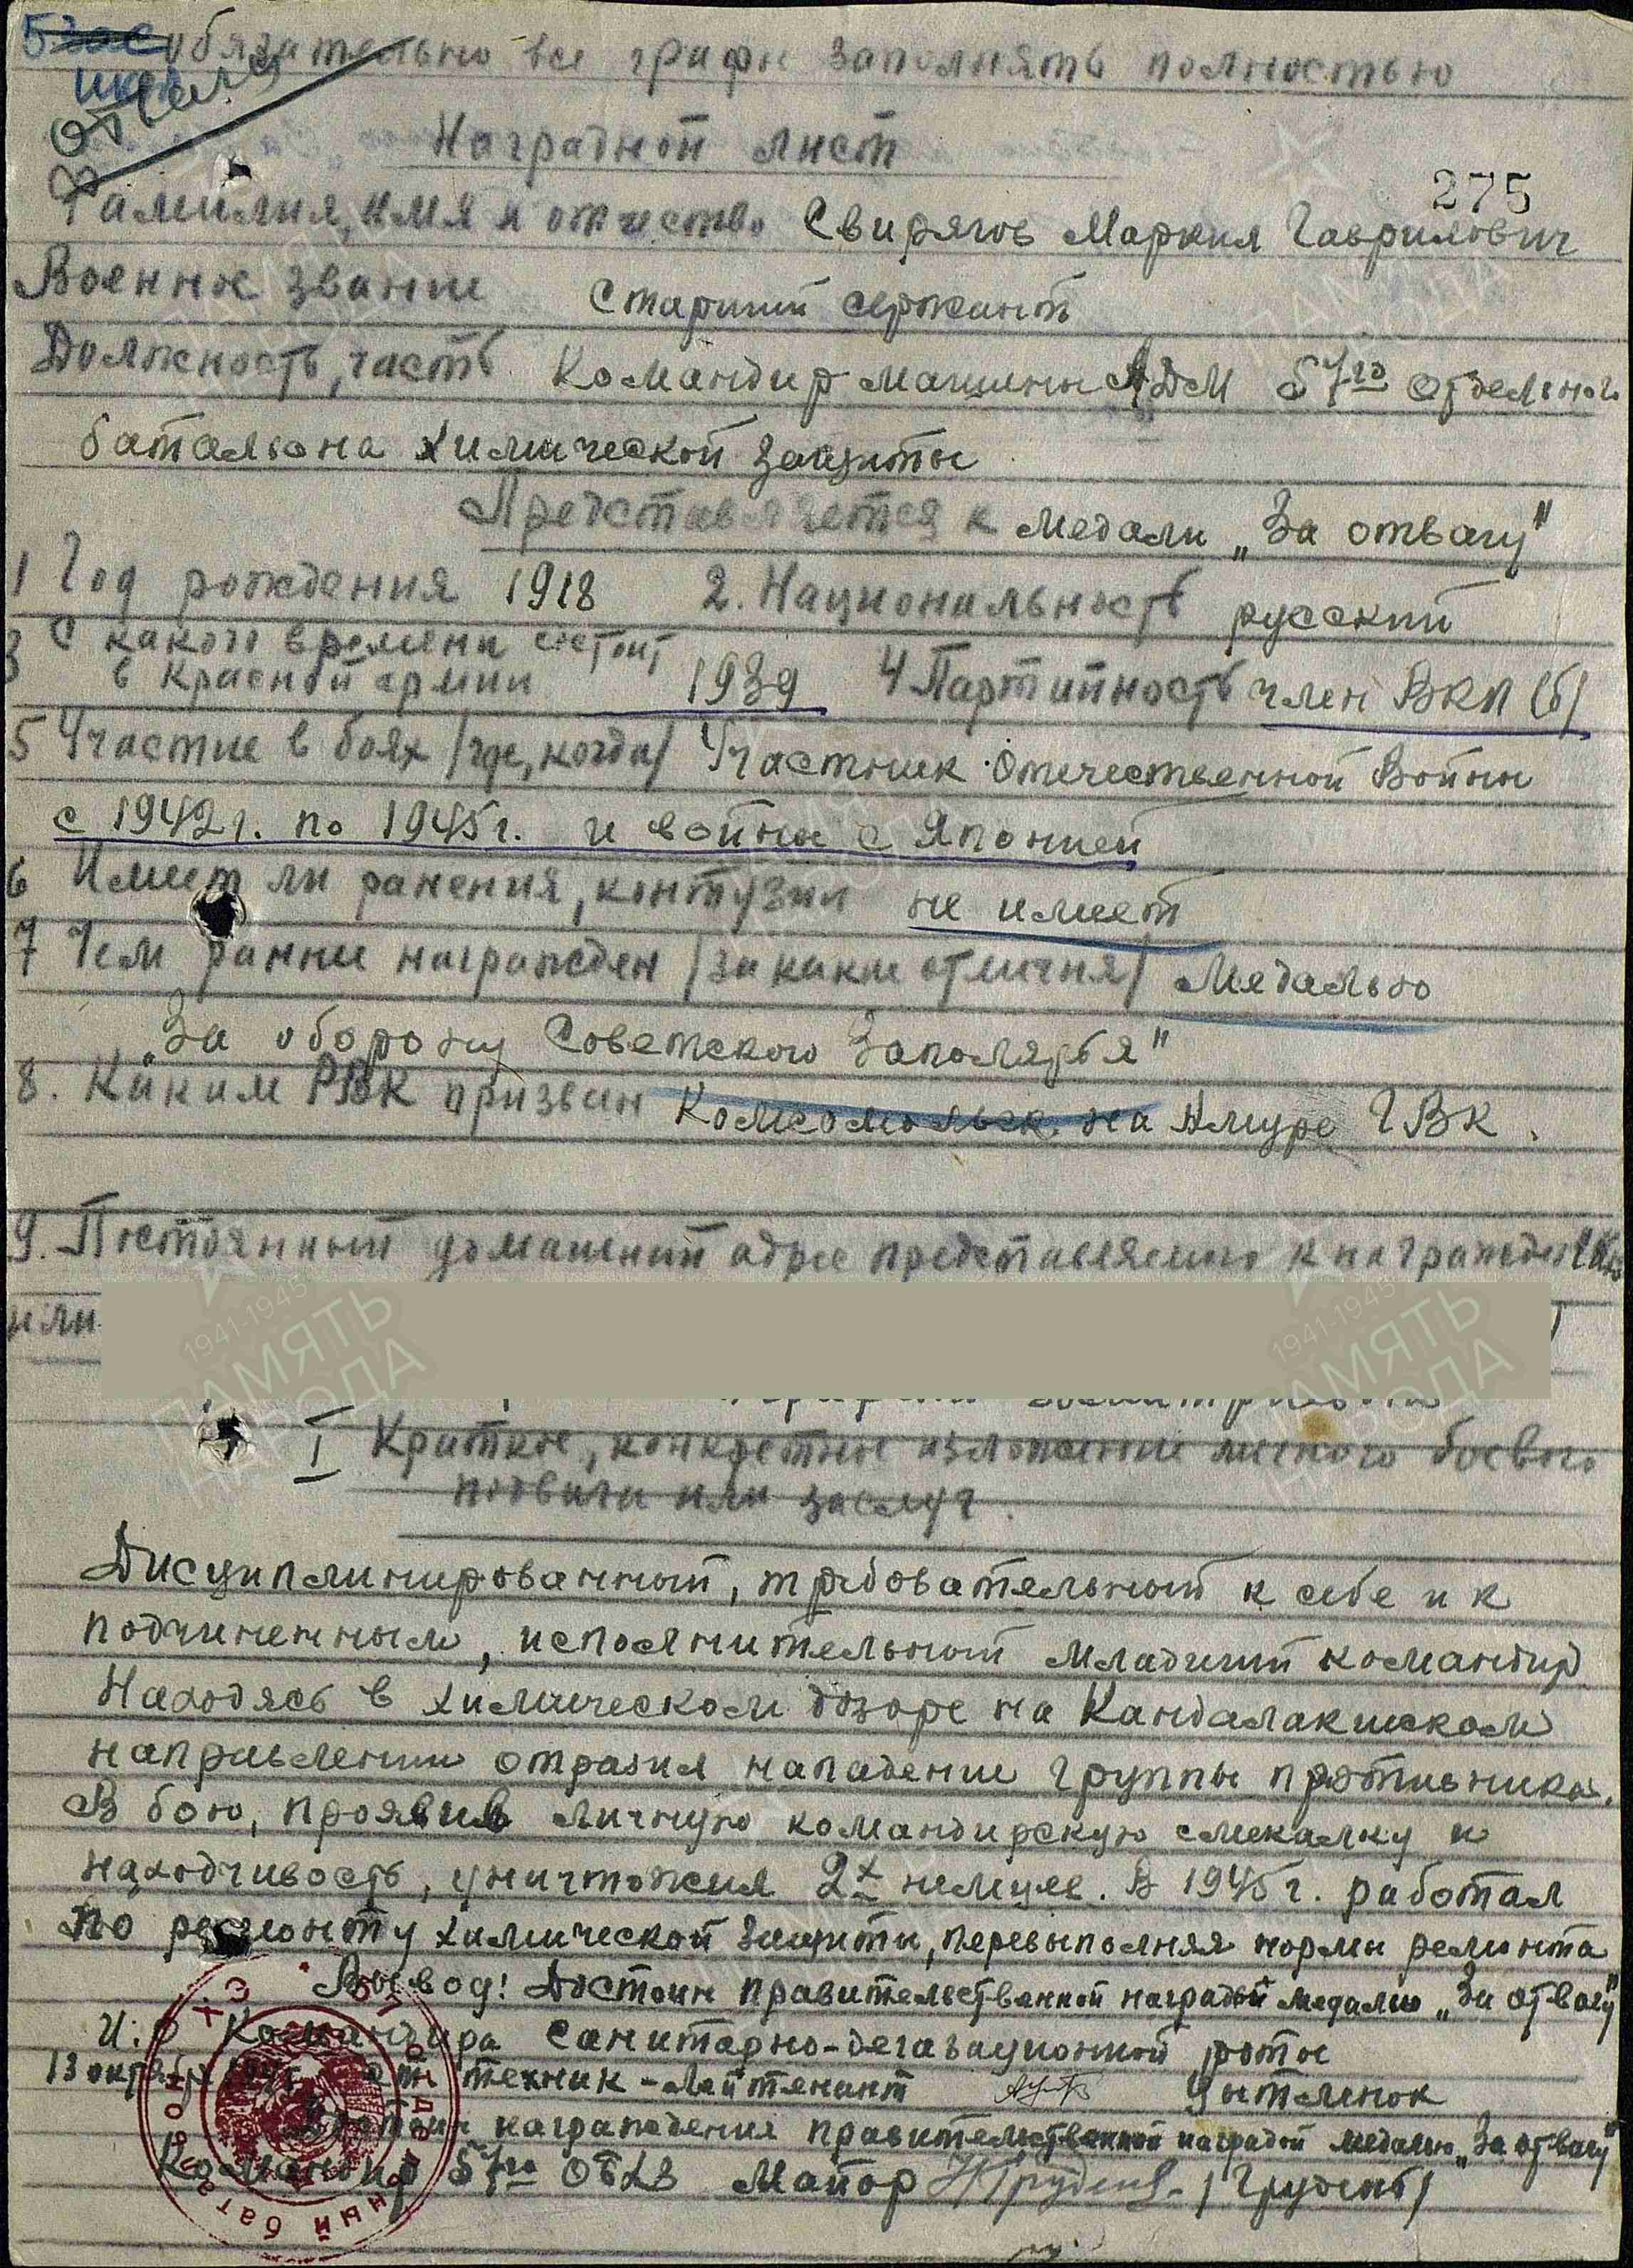 обязательно все графы заполнять полностью
Наградной лист
275
Фамилия, имя и отчество Свирягов Маркил Гаврилович
Военное звание старший сержант
Должность, часть Командир машины АДМ 57го отдельного
батальона химической защиты
Представляется к медали „За отвагу"
1 Год рождения 1918 2. Национальность русский
3 С какого времени состоит
в Красной армии 1939 4 Партийность член ВКП(б)
5 Участие в боях /где, когда/ Участник Отечественной Войны
с 1942г. по 1945г. и войны с Японией
6 Имеет ли ранения, контузии не имеет
7 Чем ранее награжден /за какие отличия/ Медалью
„За оборону Советского Заполярья"
8. Каким РВК призван Комсомольск на Амуре ГВК.
9. Постоянный домашний адрес представляемого к награждению
или
I Краткое, конкретное изложение личного боевого
подвига или заслуг.
Дисциплинированный, требовательный к себе и к
подчиненным, исполнительный младший командир
Находясь в химическом дозоре на Кандалакшском
направлении отразил нападение группы противника.
В бою, проявив личную командирскую смекалку и
находчивость, уничтожил 2х немцев. В 1945г. работал
по ремонту химической защиты, перевыполняя нормы ремонта
Вывод: Достоин правительственной награды медалью „За отвагу"
И.О Командира санитарно-дегазационной роты
13 октября 1945 ст. техник-лейтенант Цытленок
Достоин награждения правительственной наградой медалью „За отвагу"
Командир 57го ОБХЗ Майор /Грудень/